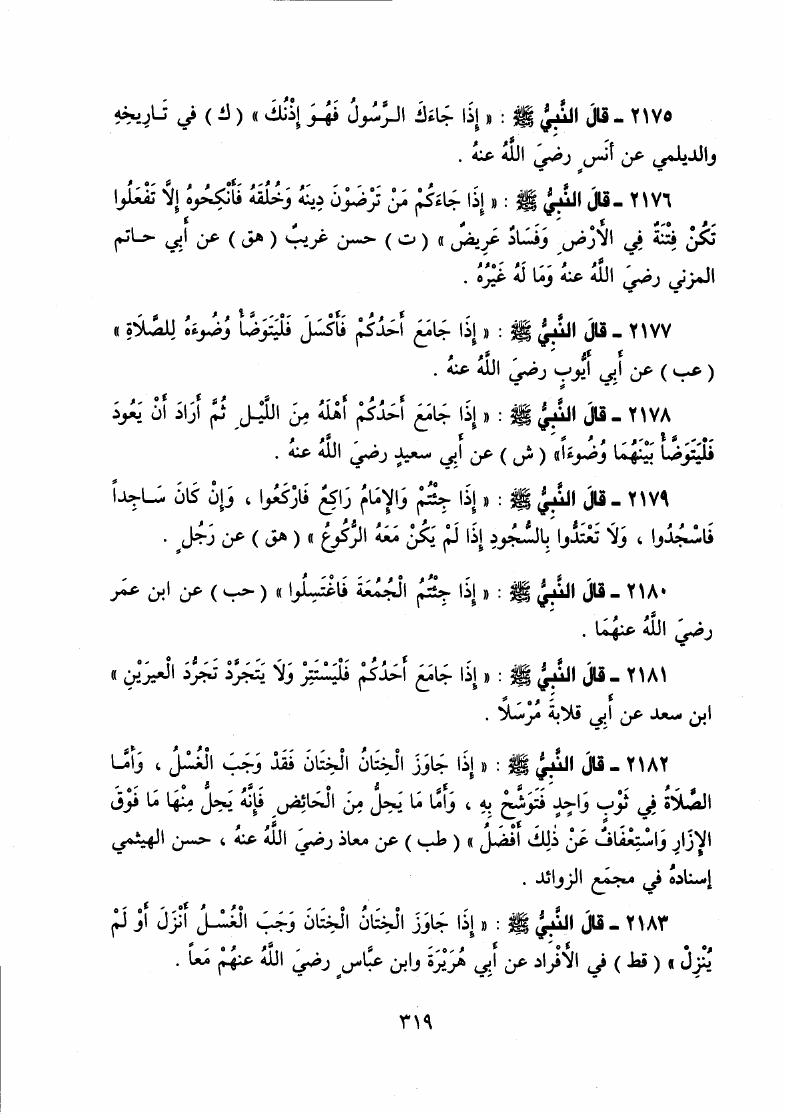 ٢١٧٥ ـ قالَ النَّبِيُّ ﷺ : « إِذَا جَاءَكَ الـرَّسُولُ فَهُـوَ إِذْنُكَ » ( ك ) في تَـارِيخِهِ
والديلمي عن أَنَسٍ رضيَ اللَّهُ عنهُ .
٢١٧٦ ـ قالَ النَّبِيُّ ﷺ : « إِذَا جَاءَكُمْ مَنْ تَرْضَوْنَ دِينَهُ وَخُلُقَهُ فَأَنْكِحُوهُ إِلاَّ تَفْعَلُوا
تَكُنْ فِتْنَةٌ فِي الأَرْضِ وَفَسَادٌ عَرِيضٌ » ( ت ) حسن غريبٌ ( هق ) عن أَبي حـاتم
المزني رضيَ اللَّهُ عنهُ وَمَا لَهُ غَيْرُهُ .
٢١٧٧ ـ قالَ النَّبِيُّ ﷺ : « إِذَا جَامَعَ أَحَدُكُمْ فَأَكْسَلَ فَلْيَتَوَضَّأْ وُضُوءَهُ لِلصَّلاَةِ »
( عب ) عن أَبي أَيُّوبٍ رضيَ اللَّهُ عنهُ .
٢١٧٨ ـ قالَ النَّبِيُّ ﷺ : « إِذَا جَامَعَ أَحَدُكُمْ أَهْلَهُ مِنَ اللَّيْـلِ ثُمَّ أَرَادَ أَنْ يَعُودَ
فَلْيَتَوَضَّأْ بَيْنَهُمَا وُضُوءَاً» ( ش ) عن أَبي سعيدٍ رضيَ اللَّهُ عنهُ .
٢١٧٩ ـ قالَ النَّبِيُّ ﷺ : « إِذَا جِئْتُمْ وَالإِمَامُ رَاكِعٌ فَارْكَعُوا ، وَإِنْ كَانَ سَـاجِداً
فَاسْجُدُوا ، وَلاَ تَعْتَدُّوا بِالسُّجُودِ إِذَا لَمْ يَكُنْ مَعَهُ الرُّكُوعُ » ( هق ) عن رَجُلٍ .
٢١٨٠ ـ قالَ النَّبِيُّ ﷺ : « إِذَا جِئْتُمُ الْجُمُعَةَ فَاغْتَسِلُوا » ( حب ) عن ابن عمَر
رضيَ اللَّهُ عنهُمَا .
٢١٨١ ـ قالَ النَّبِيُّ ﷺ : « إِذَا جَامَعَ أَحَدُكُمْ فَلْيَسْتَتِرْ وَلاَ يَتَجَرَّدْ تَجَرُّدَ الْعيرَيْنِ »
ابن سعد عن أَبي قلابةَ مُرْسَلًا .
٢١٨٢ ـ قالَ النَّبِيُّ ﷺ : « إِذَا جَاوَزَ الْخِتَانُ الْخِتَانَ فَقَدْ وَجَبَ الْغُسْلُ ، وَأَمَّـا
الصَّلاَةُ فِي ثَوْبٍ وَاحِدٍ فَتَوَشَّحْ بِهِ ، وَأَمَّا مَا يَحِلُّ مِنَ الْحَائِضِ فَإِنَّهُ يَحِلُّ مِنْهَا مَا فَوْقَ
الإِزَارِ وَاسْتِعْفَافٌ عَنْ ذٰلِكَ أَفْضَلُ » ( طب ) عن معاذ رضيَ اللَّهُ عنهُ ، حسن الهيثمي
إسنادهُ في مجمَع الزوائد .
٢١٨٣ ـ قالَ النَّبِيُّ ﷺ : « إِذَا جَاوَزَ الْخِتَانُ الْخِتَانَ وَجَبَ الْغُسْـلُ أَنْزَلَ أَوْ لَمْ
يُنْزِلْ » ( قط ) في الأفْراد عن أَبي هُرَيْرَةَ وابن عبَّاسٍ رضيَ اللَّهُ عنهُمْ مَعاً .
٣١٩